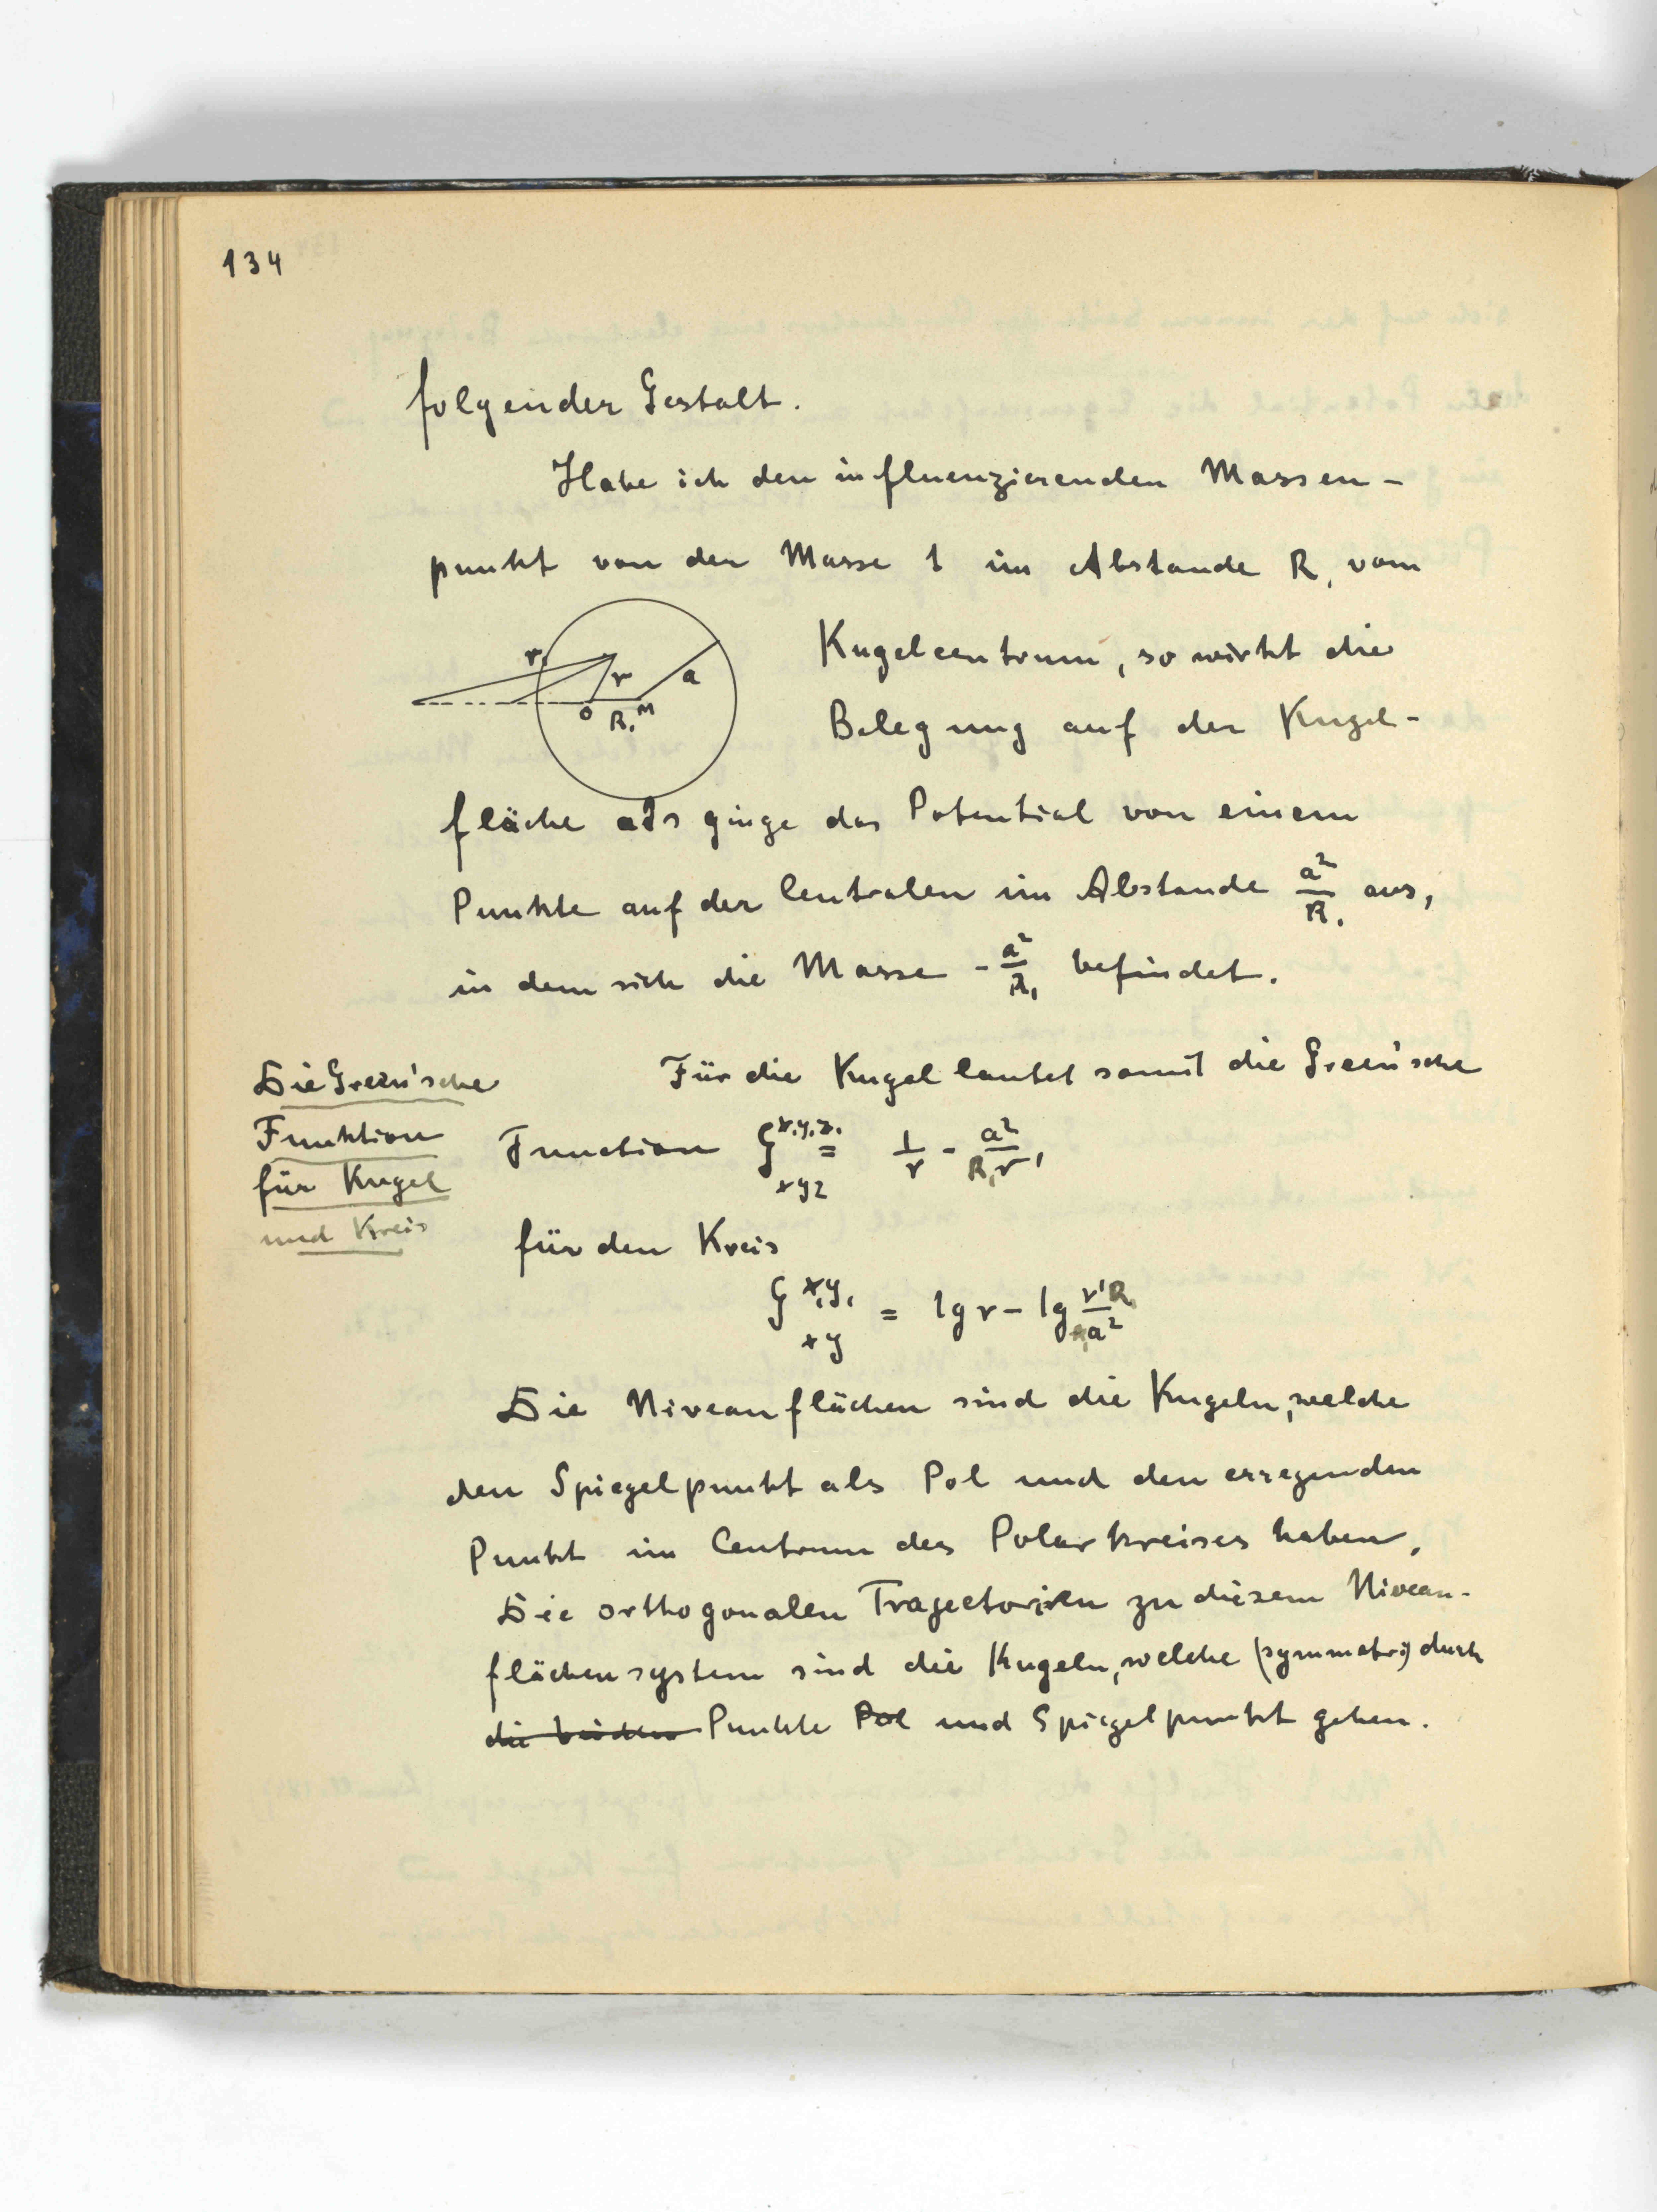 134
folgender Gestalt.
Habe ich den influenzierenden Massen-
punkt von der Masse 1 im Abstande R₁ vom
Kugelcentrum, so wirkt die
Belegung auf der Kugel-
r₁ r a O R₁ M
fläche als ginge das Potential von einem
Punkte auf der Centralen im Abstande a²/R₁ aus,
in dem sich die Masse - a²/R₁ befindet.
Für die Kugel lautet somit die Green'sche
Die Green'sche
Funktion
für Kugel
und Kreis
Function G^{x₁y₁z₁}_{xyz} = 1/r - a²/R₁r'
für den Kreis
G^{x₁y₁}_{xy} = lg r - lg r'R₁/a²
Die Niveauflächen sind die Kugeln, welche
den Spiegelpunkt als Pol und den erregenden
Punkt im Centrum des Polarkreises haben.
Die orthogonalen Trajectorien zu diesem Niveau-
flächensystem sind die Kugeln, welche (symmetr.) durch
die beiden Punkte Pol und Spiegelpunkt gehen.